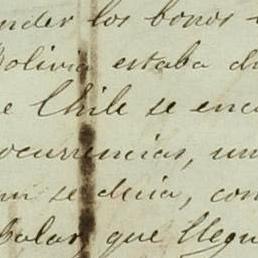 nder los bonos
Bolivia estaba d
e Chile se enca
ocurrencias, un
un se decia, con
balar, que llegu